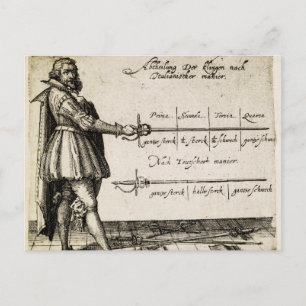 Abtheilung Der Klingen nach
Italianischer manier.
Prima. Secunda. Tertia. Quarta.
gantze sterck ½ sterck ½ schwech gantze schwech
Nach Teutscher manier.
gantze sterck halbe sterck gantze schwech